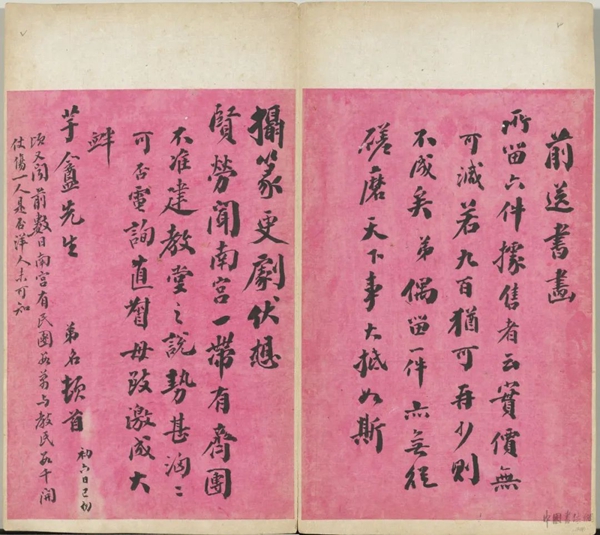 前送書畫
所留六件據售者云實價無
可減若九百猶可再少則
不成矣弟偶留一件亦無從
磋磨天下事大抵如斯
攝篆更劇伏想
賢勞聞南宮一帶有齊團
不准建教堂之說勢甚洶〻
可否電詢直督毋致激成大
衅
芋盦先生
弟名頓首
初六日巳初
頃又聞前數日南宮有民團數萬与教民數千開
仗傷一人是否洋人未可知